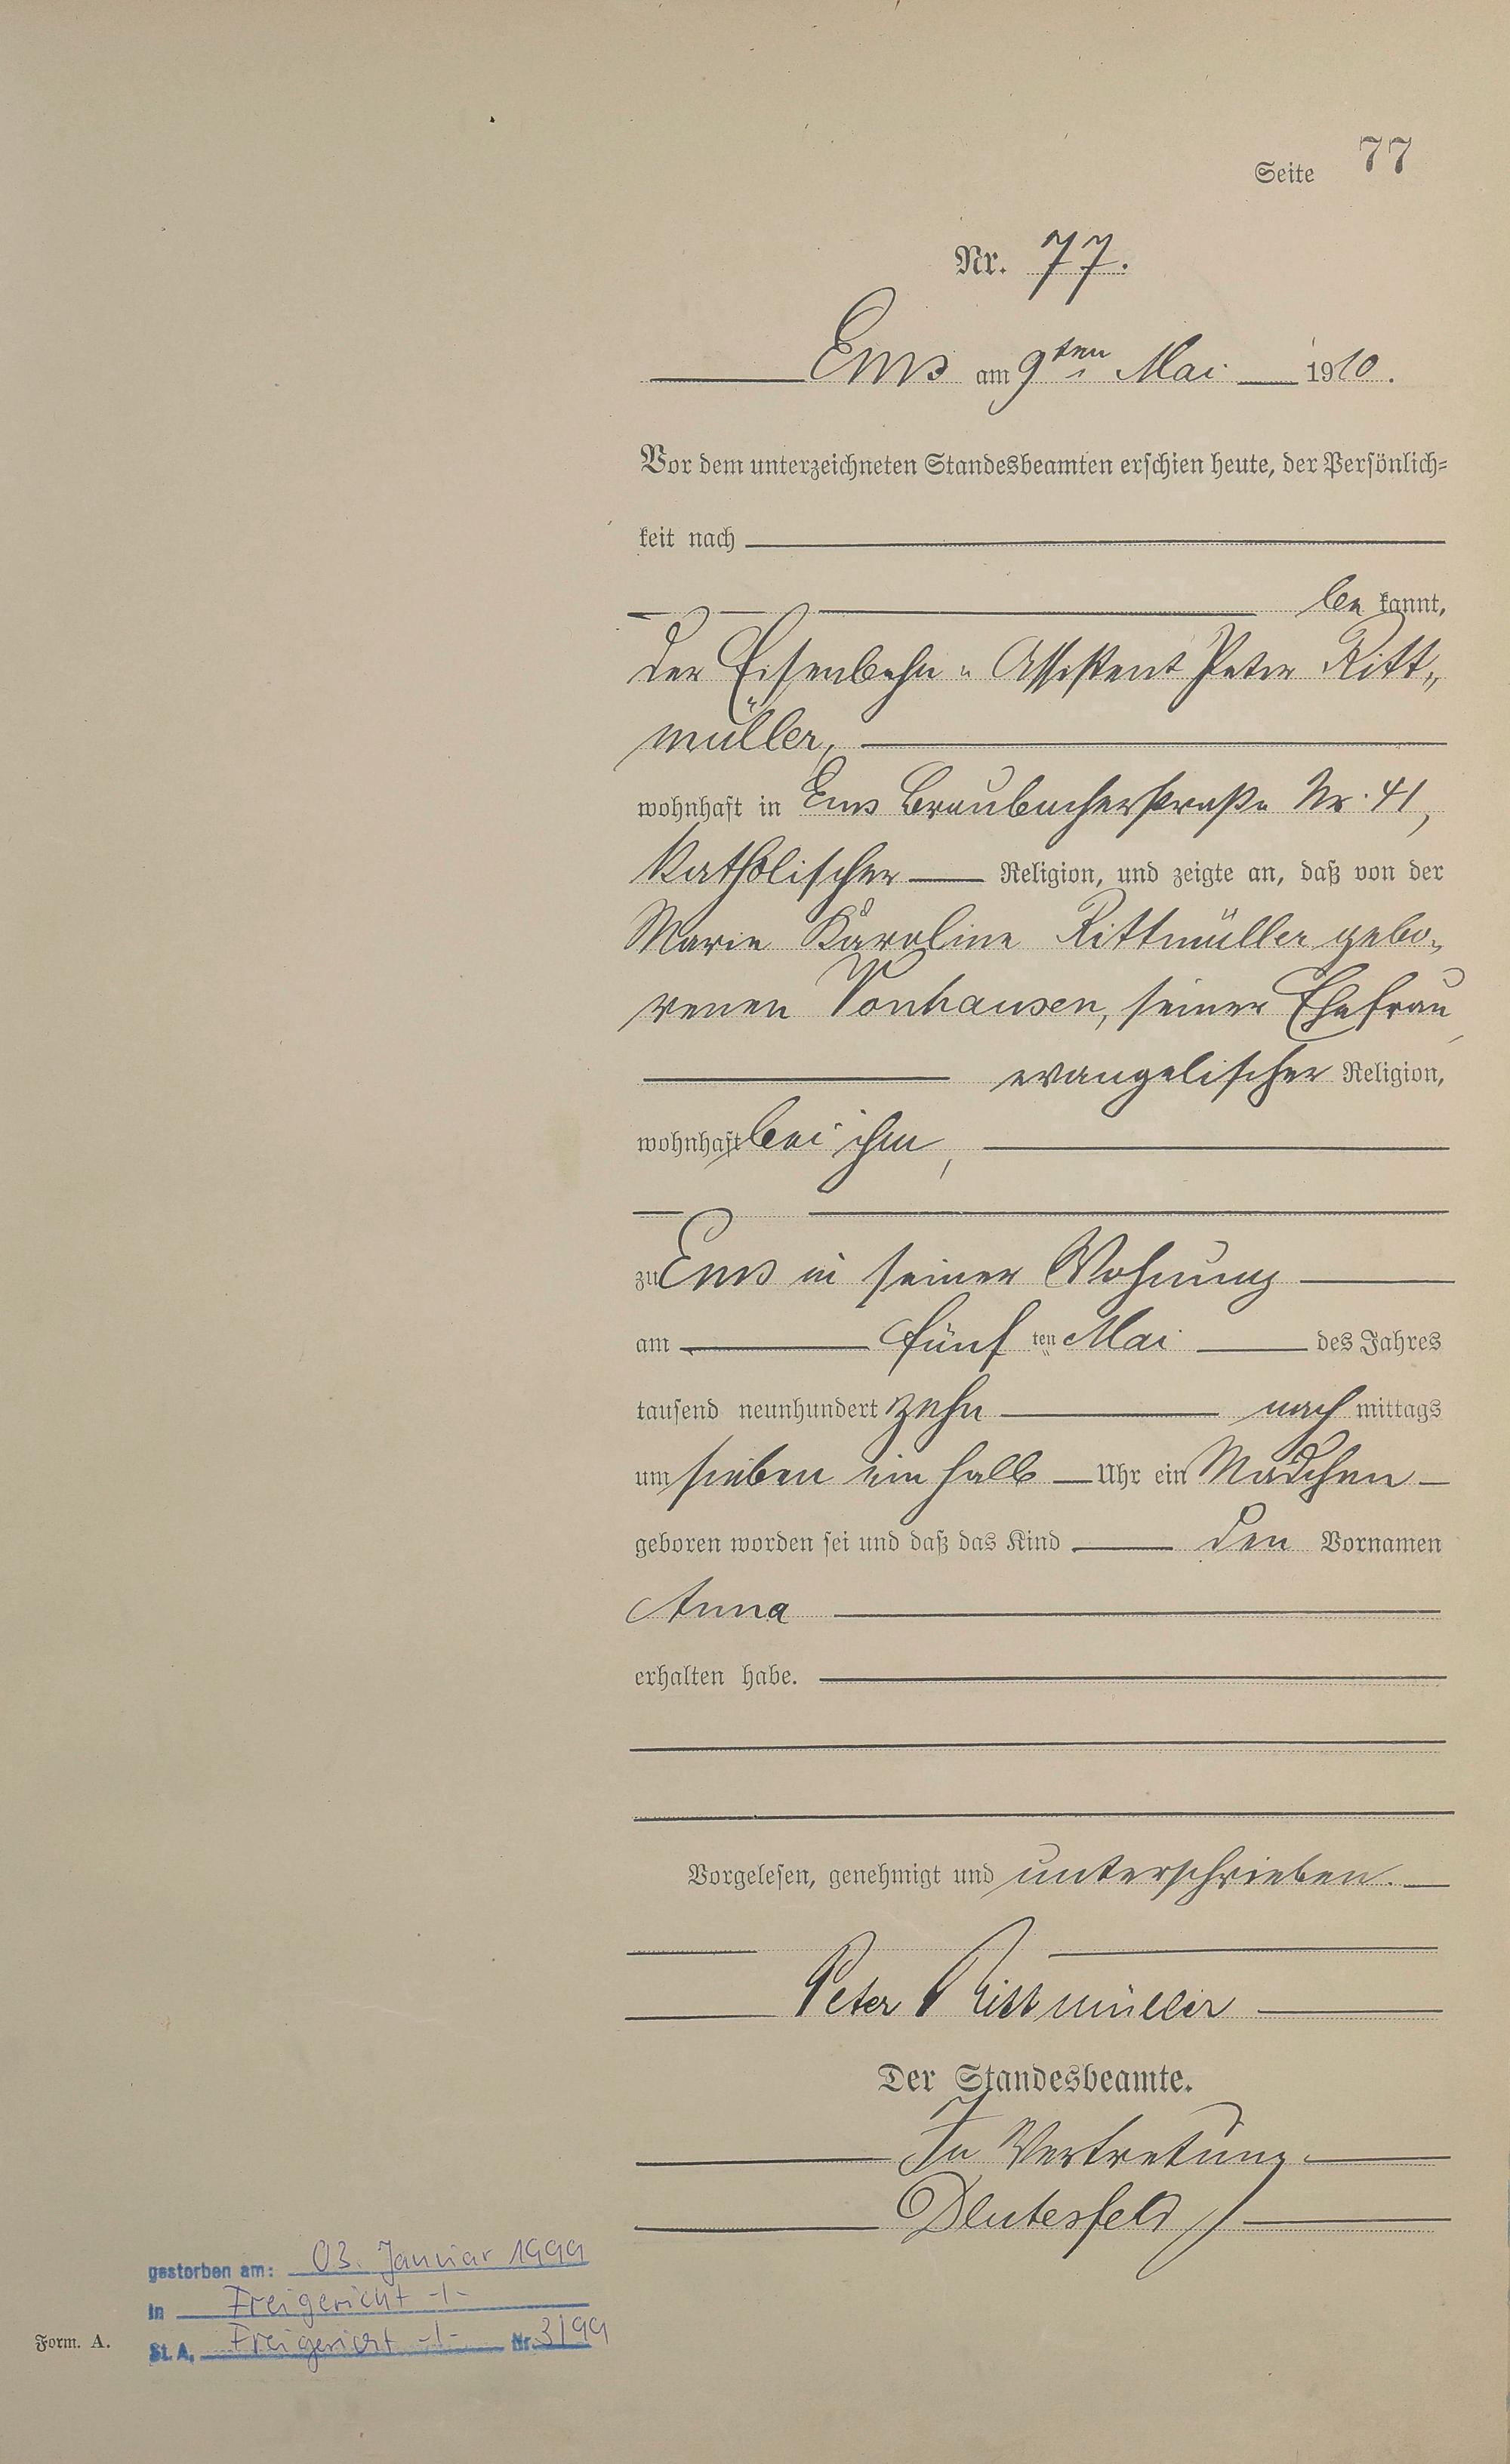 Seite 77
Nr. 77.
Ems am 9ten Mai 1910.
Vor dem unterzeichneten Standesbeamten erschien heute, der Persönlich=
keit nach
be kannt,
der Eisenbahn-Assistent Peter Ritt„
müller,
wohnhaft in Ems Braubacherstraße Nr. 41,
Katholischer Religion, und zeigte an, daß von der
Marie Karoline Rittmüller gebo„
renen Vonhausen, seiner Ehefrau,
evangelischer Religion,
wohnhaft bei ihm,
zu Ems in seiner Wohnung
am fünf ten Mai des Jahres
tausend neunhundert zehn nach mittags
um sieben ein halb Uhr ein Mädchen
geboren worden sei und daß das Kind den Vornamen
Anna
erhalten habe.
Vorgelesen, genehmigt und unterschrieben.
Peter Rittmüller
Der Standesbeamte.
In Vertretung
gestorben am: 03. Januar 1999
in Freigericht -1-
Form. A. St. A. Freigericht -1- Nr. 3/99